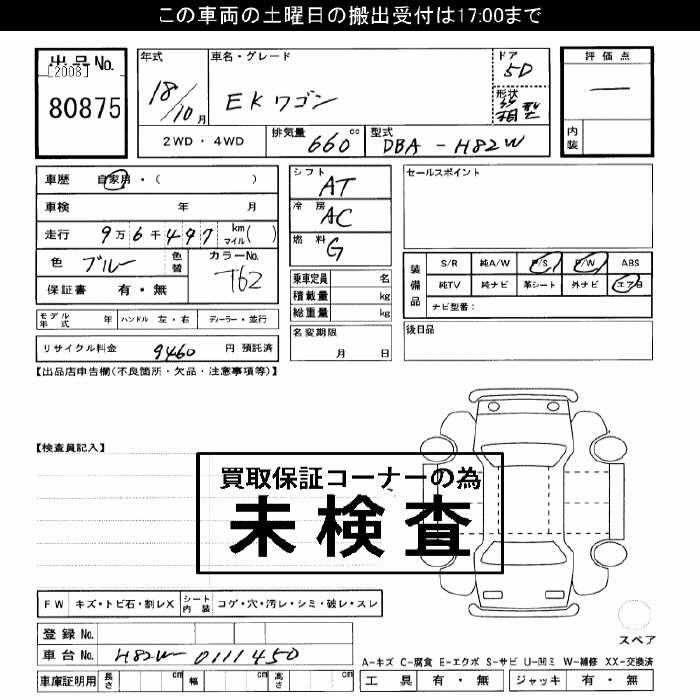 この車両の土曜日の搬出受付は17:00まで
出品No. [2008] 80875
年式 18/10月
車名・グレード EKワゴン
ドア 5D
形状 箱型
評価点 —
内装
2WD・4WD 排気量 660cc 型式 DBA-H82W
車歴 自家用・( )
車検 年 月
走行 9万6千497 km マイル( )
色 ブルー 色替 カラーNo. T62
保証書 有・無
モデル年式 年 ハンドル 左・右 ディーラー・並行
リサイクル料金 9460 円 預託済
シフト AT
冷房 AC
燃料 G
乗車定員 名
積載量 kg
総重量 kg
名変期限 月 日
セールスポイント
装備品 S/R 純A/W P/S P/W ABS
純TV 純ナビ 革シート 外ナビ エアB
ナビ型番:
後日品
【出品店申告欄(不良箇所・欠品・注意事項等)】
【検査員記入】
買取保証コーナーの為
未検査
FW キズ・トビ石・割レX シート内装 コゲ・穴・汚レ・シミ・破レ・スレ
登録No.
車台No. H82W-0111450
車庫証明用 長さ cm 幅 cm 高さ cm
スペア
A-キズ C-腐食 E-エクボ S-サビ U-凹ミ W-補修 XX-交換済
工具 有・無 ジャッキ 有・無